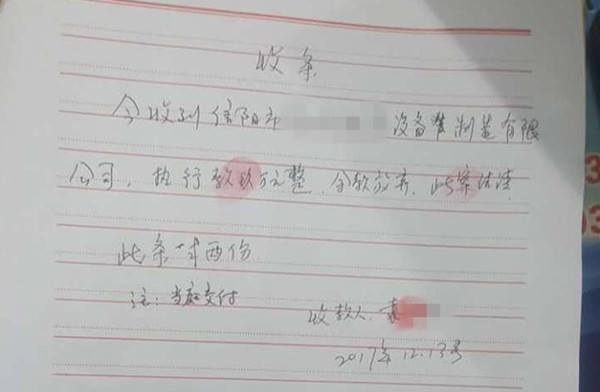 收条
今收到信阳市 设备制造有限
公司，执行款玖万元整，余款放弃，此案结清
此条一式两份
注：当庭交付
收款人：袁
2017年12.13号